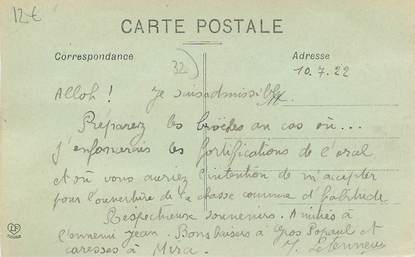 12€
CARTE POSTALE
Correspondance
32
Adresse
10.7.22
Alloh! Je suis admissible
Preparez les au cas où...
j'enfoncerais les fortifications de l'oral
et où vous auriez l'intention de m'accepter
pour l'ouverture de la chasse comme d'habitude
Respectueux souvenirs. Amitiés à
l'ennemi Jean. Bons baisers à Gros Popaul et
caresses à Mirza.